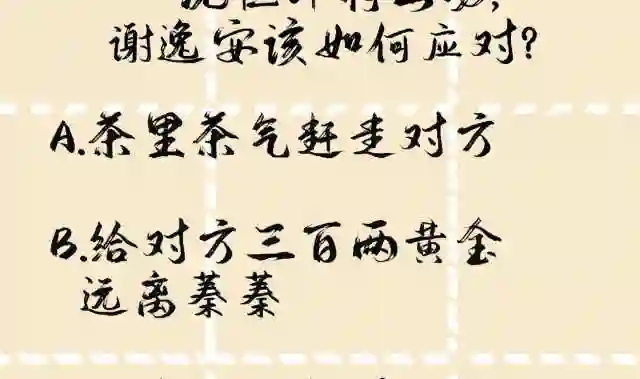 谢逸安该如何应对?
A.茶里茶气赶走对方
B.给对方三百两黄金
远离蓁蓁